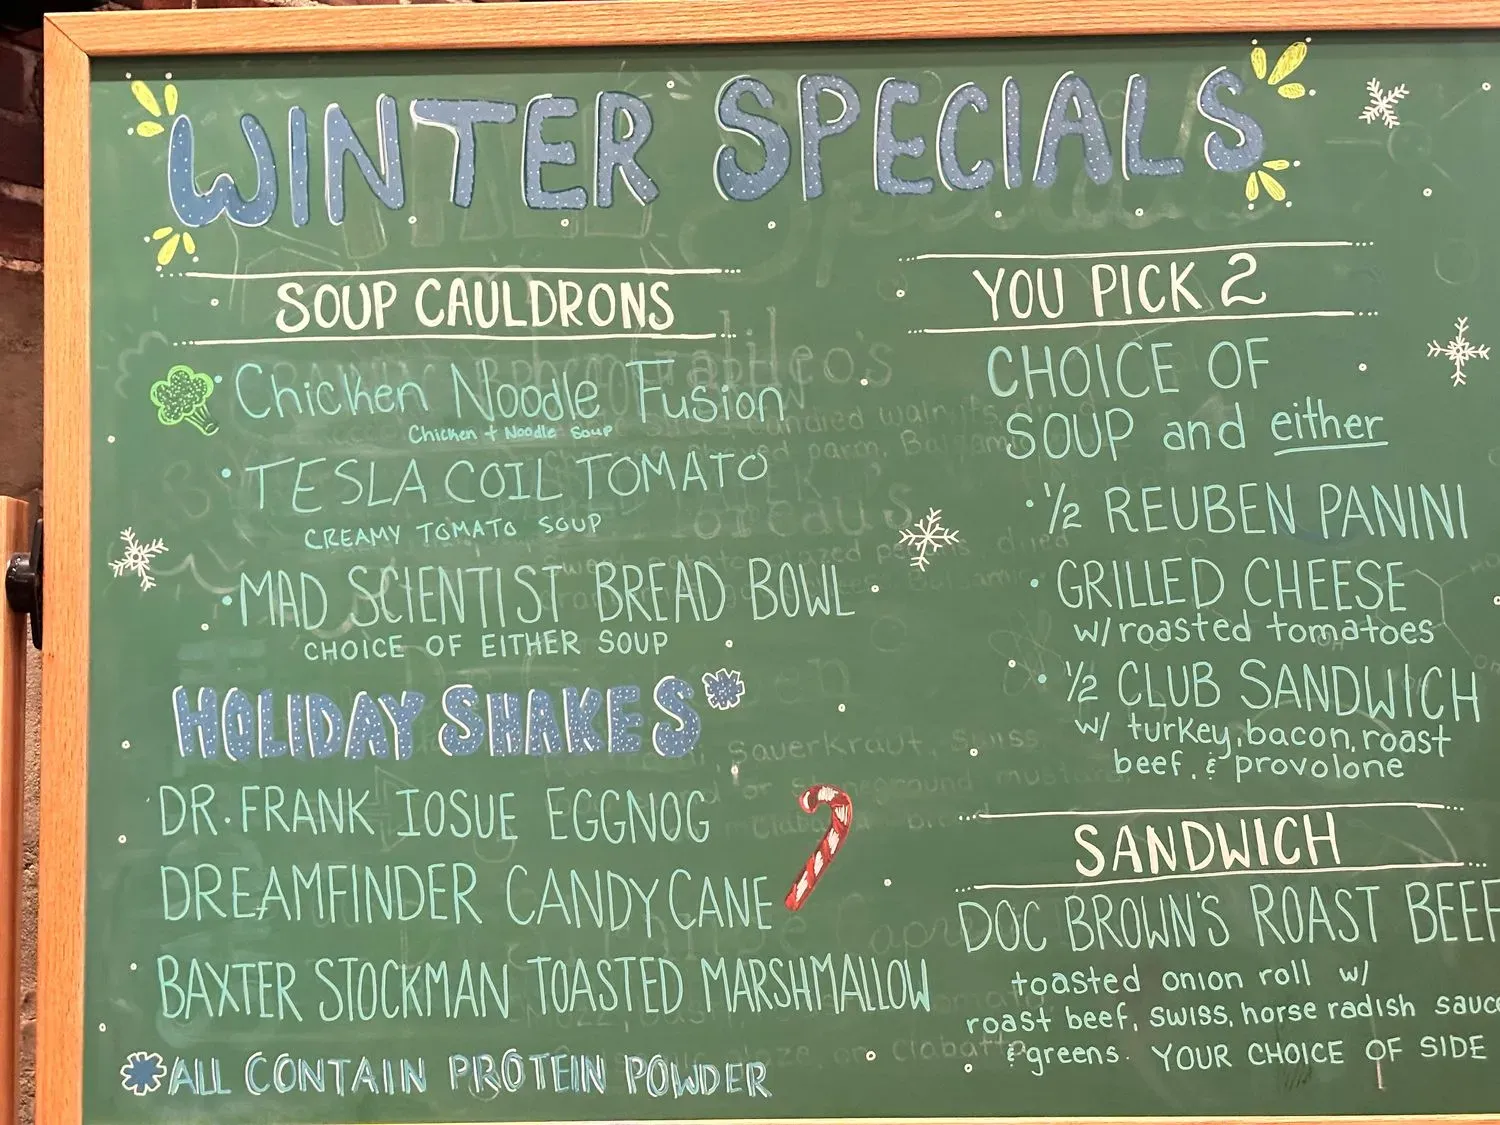 WINTER SPECIALS
SOUP CAULDRONS
• Chicken Noodle Fusion
Chicken + Noodle Soup
• TESLA COIL TOMATO
CREAMY TOMATO SOUP
• MAD SCIENTIST BREAD BOWL
CHOICE OF EITHER SOUP
HOLIDAY SHAKES*
DR. FRANK IOSUE EGGNOG
DREAMFINDER CANDY CANE
BAXTER STOCKMAN TOASTED MARSHMALLOW
*ALL CONTAIN PROTEIN POWDER
YOU PICK 2
CHOICE OF
SOUP and either
• 1/2 REUBEN PANINI
• GRILLED CHEESE
w/ roasted tomatoes
• 1/2 CLUB SANDWICH
w/ turkey, bacon, roast
beef, & provolone
SANDWICH
DOC BROWN'S ROAST BEEF
toasted onion roll w/
roast beef, swiss, horse radish sauce
& greens. YOUR CHOICE OF SIDE